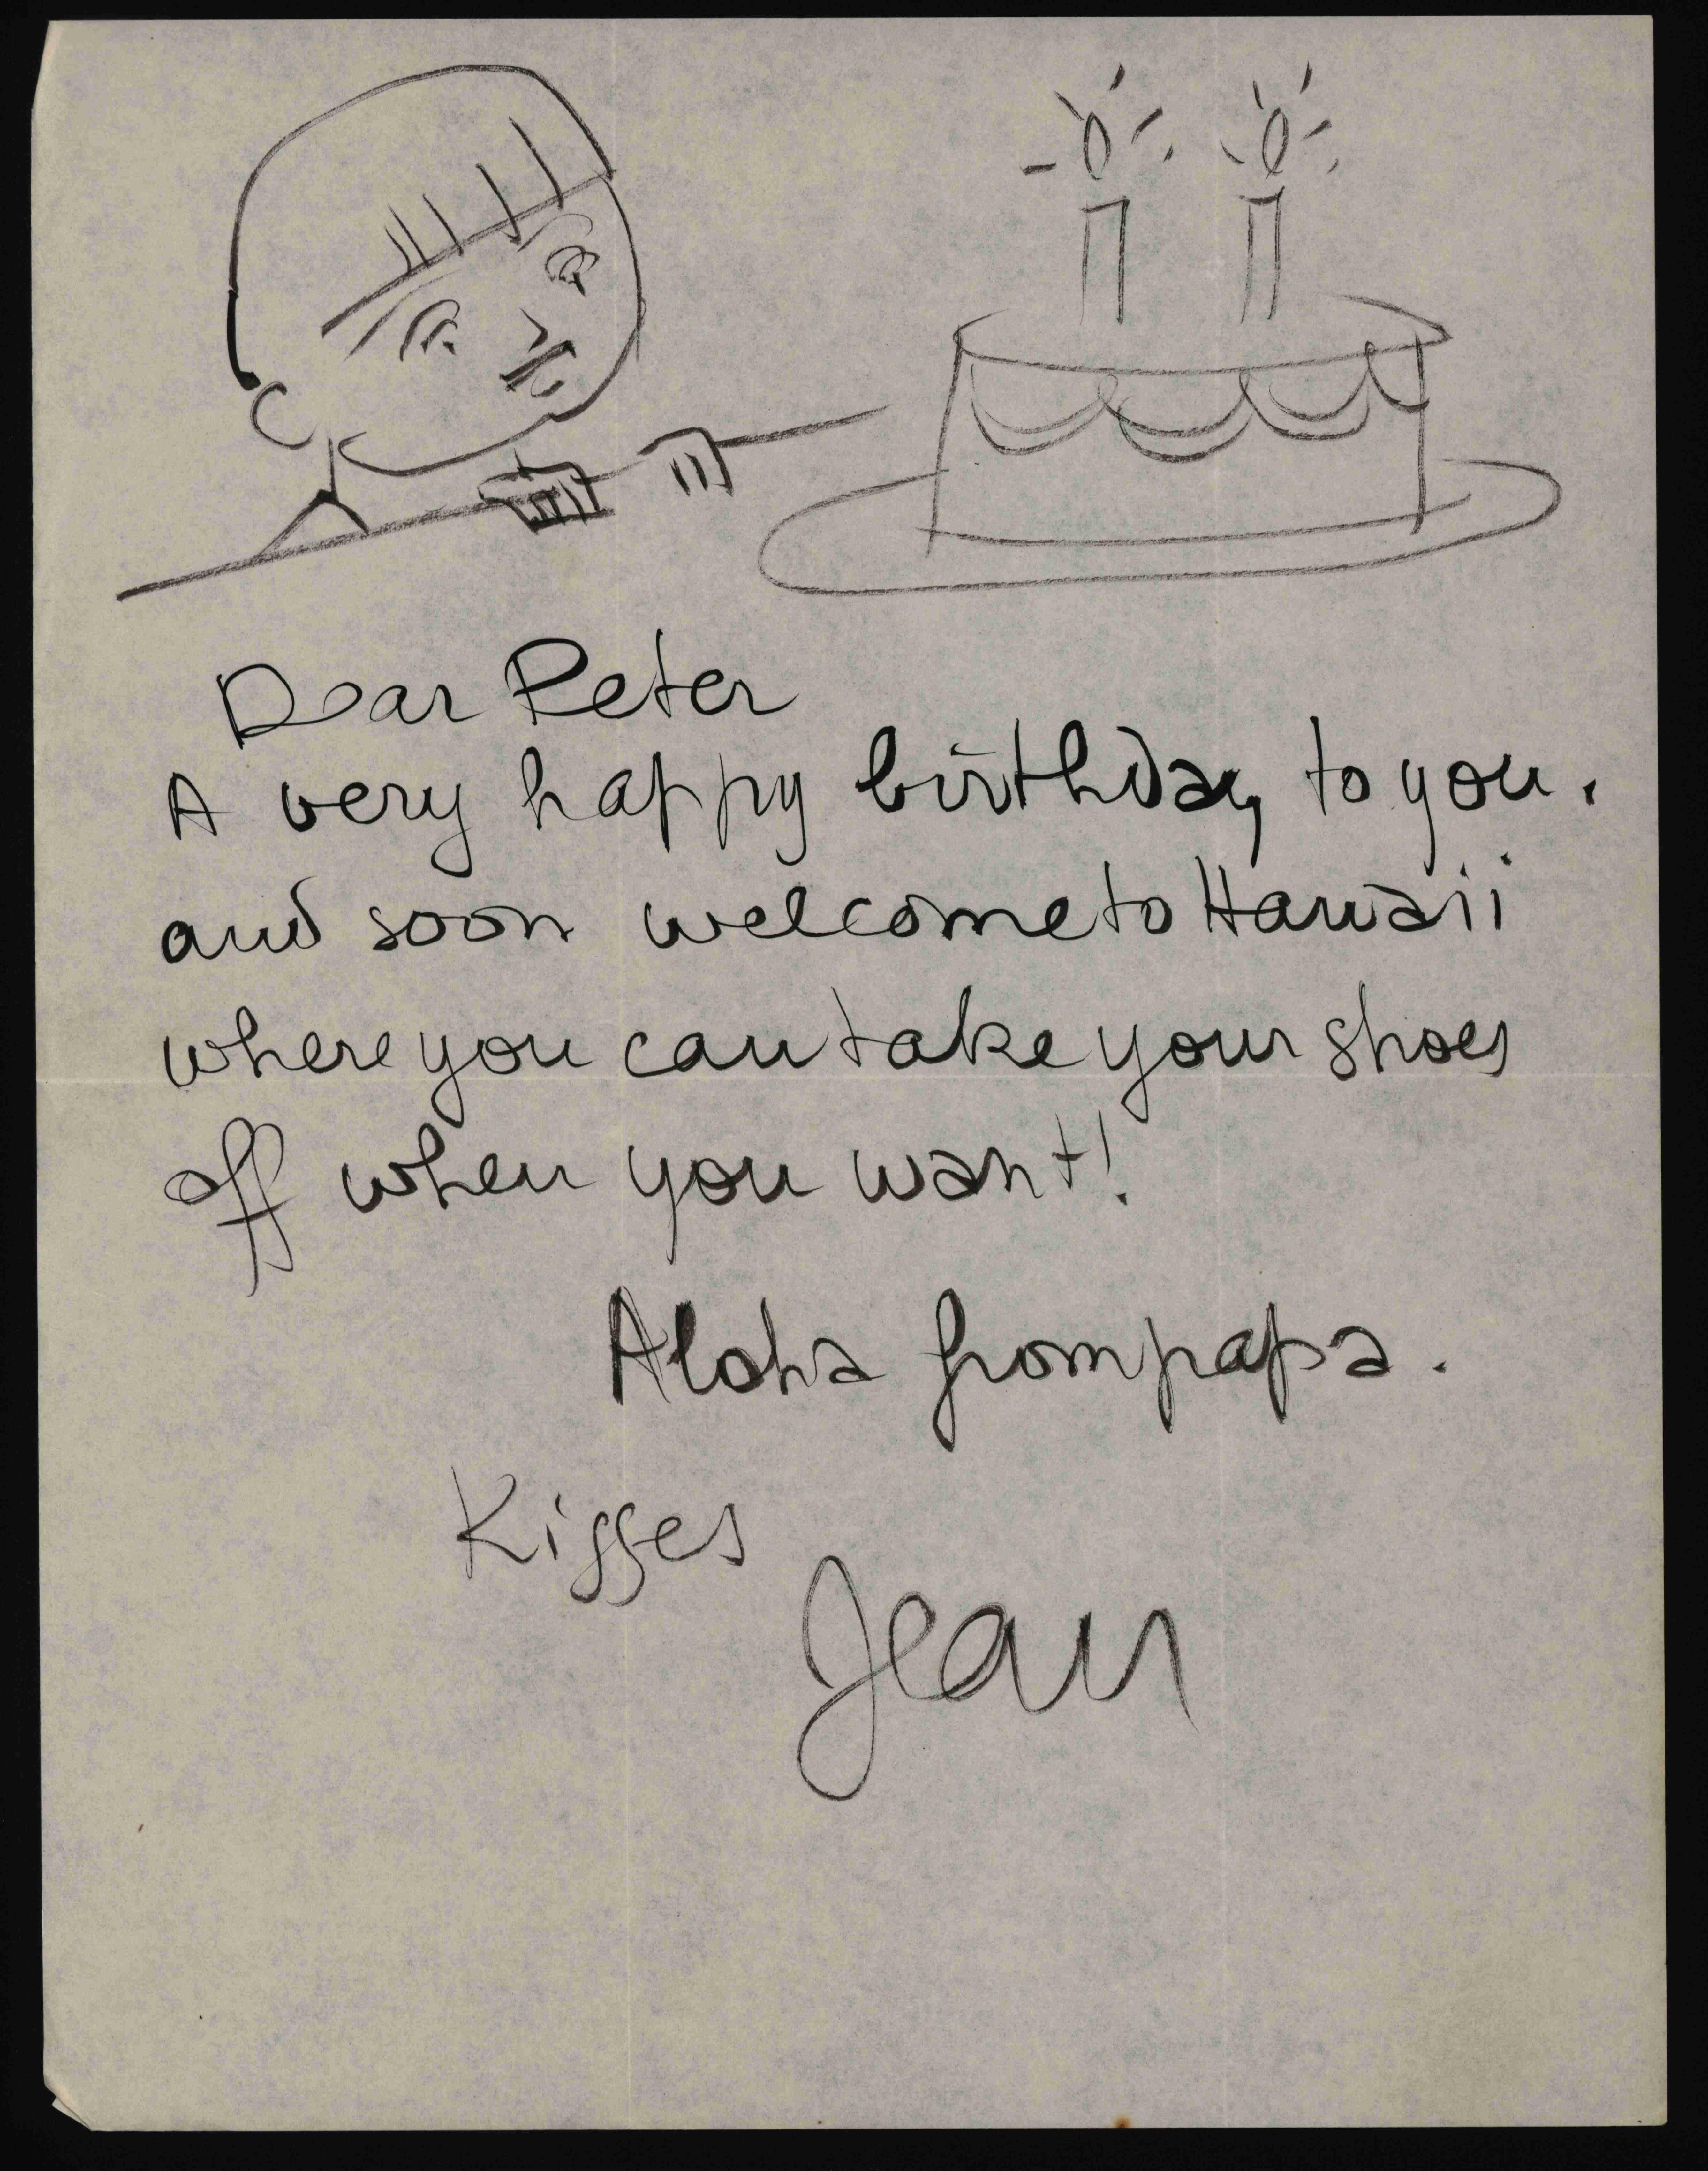 Dear Peter
A very happy birthday to you.
and soon welcome to Hawaii
where you can take your shoes
off when you want!
Aloha from papa.
Kisses
Jean